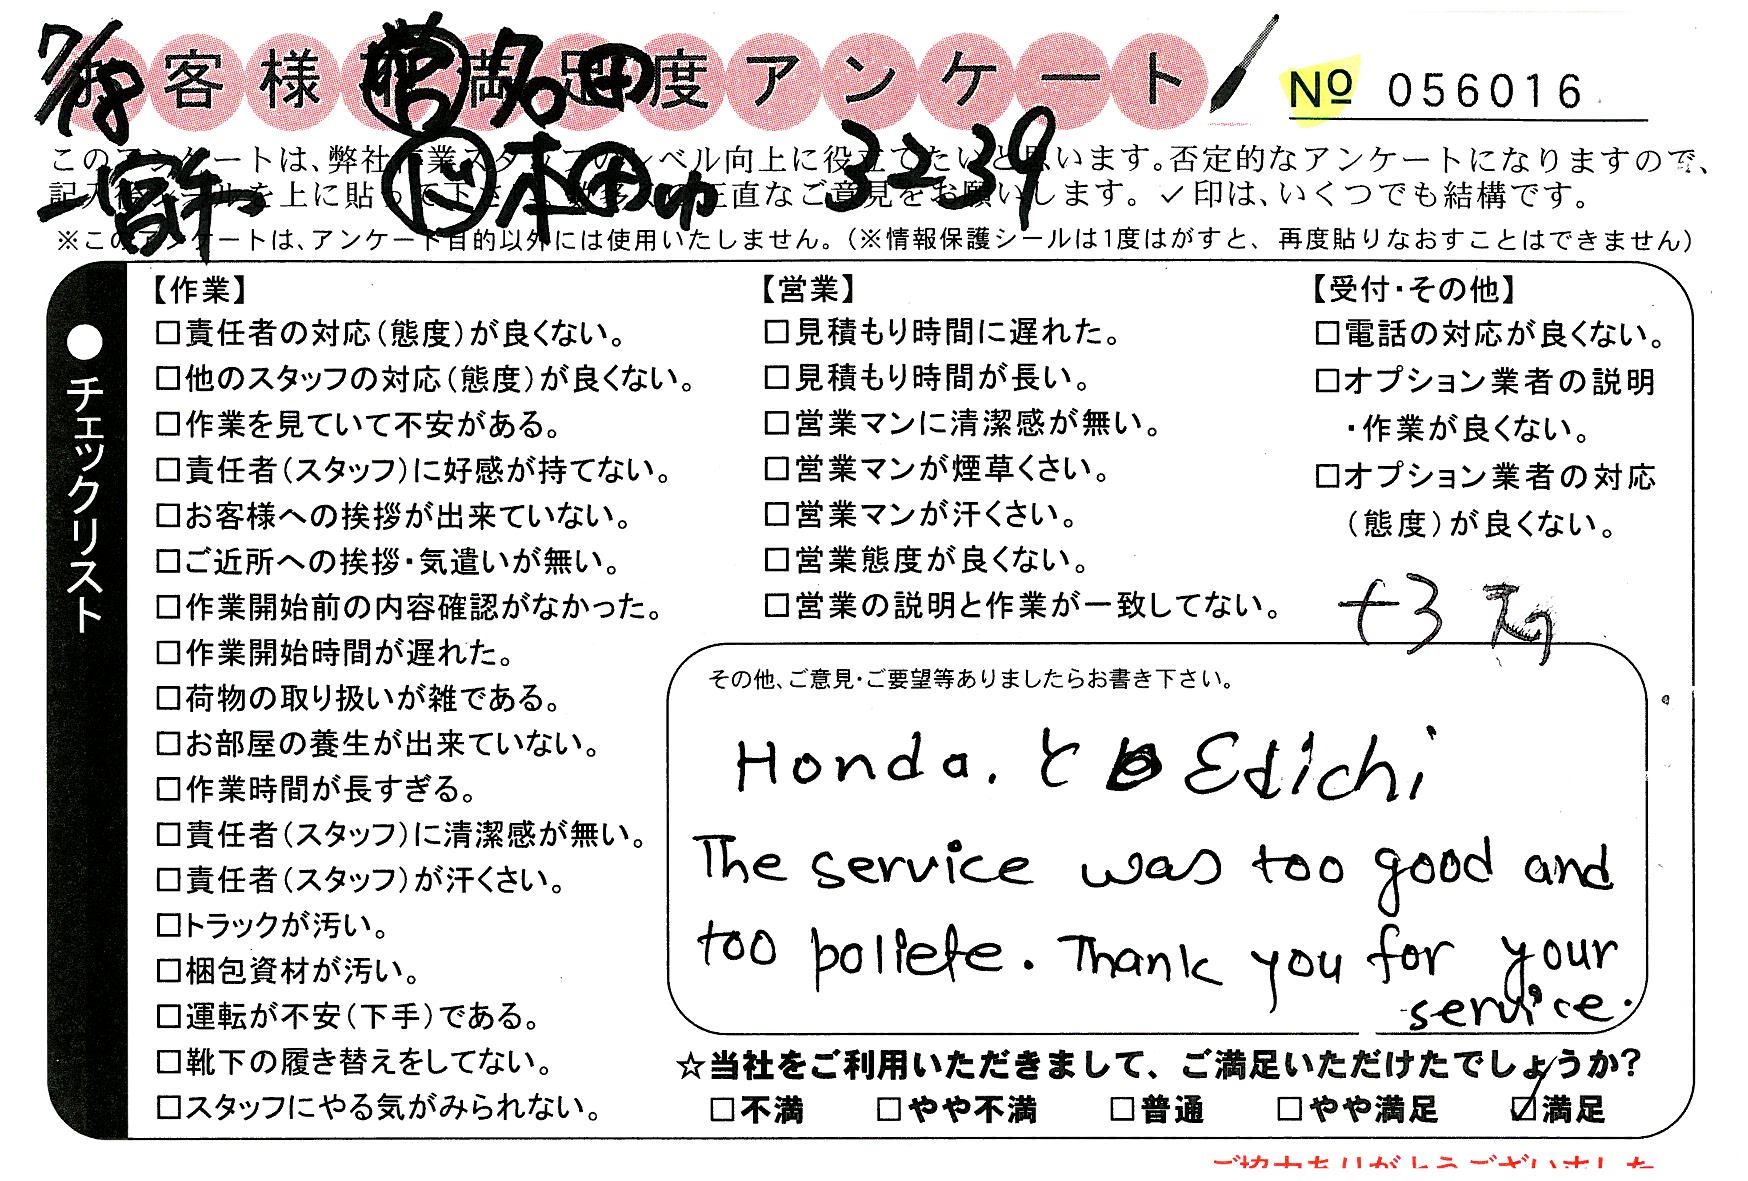 7/18
お客様 満足度アンケート
No 056016
多田
本田 3239
このアンケートは、弊社作業スタッフのレベル向上に役立てたいと思います。否定的なアンケートになりますので、
記入後シールを上に貼って下さい。数多くの正直なご意見をお願いします。✓印は、いくつでも結構です。
※このアンケートは、アンケート目的以外には使用いたしません。(※情報保護シールは1度はがすと、再度貼りなおすことはできません)
●チェックリスト
【作業】
□責任者の対応(態度)が良くない。
□他のスタッフの対応(態度)が良くない。
□作業を見ていて不安がある。
□責任者(スタッフ)に好感が持てない。
□お客様への挨拶が出来ていない。
□ご近所への挨拶・気遣いが無い。
□作業開始前の内容確認がなかった。
□作業開始時間が遅れた。
□荷物の取り扱いが雑である。
□お部屋の養生が出来ていない。
□作業時間が長すぎる。
□責任者(スタッフ)に清潔感が無い。
□責任者(スタッフ)が汗くさい。
□トラックが汚い。
□梱包資材が汚い。
□運転が不安(下手)である。
□靴下の履き替えをしてない。
□スタッフにやる気がみられない。
【営業】
□見積もり時間に遅れた。
□見積もり時間が長い。
□営業マンに清潔感が無い。
□営業マンが煙草くさい。
□営業マンが汗くさい。
□営業態度が良くない。
□営業の説明と作業が一致してない。
【受付・その他】
□電話の対応が良くない。
□オプション業者の説明
・作業が良くない。
□オプション業者の対応
(態度)が良くない。
+3
その他、ご意見・ご要望等ありましたらお書き下さい。
Honda. と Edichi
The service was too good and
too poliete. Thank you for your
service.
☆当社をご利用いただきまして、ご満足いただけたでしょうか?
□不満 □やや不満 □普通 □やや満足 ☑満足
ご協力ありがとうございました